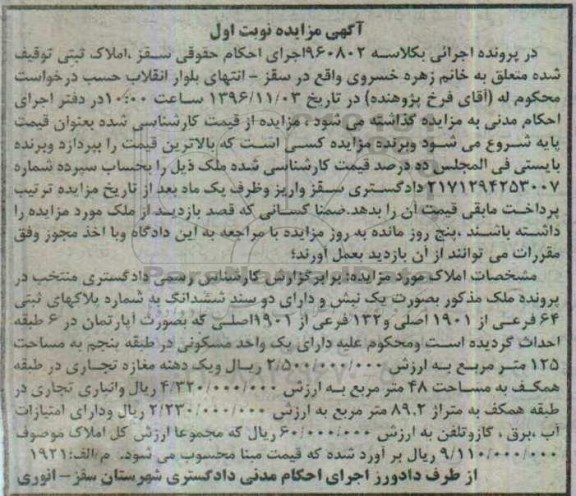 آگهی مزایده نوبت اول
در پرونده اجرائی بکلاسه ۹۶۰۸۰۲اجرای احکام حقوقی سقز ،املاک ثبتی توقیف
شده متعلق به خانم زهره خسروی واقع در سقز - انتهای بلوار انقلاب حسب درخواست
محکوم له (آقای فرخ پژوهنده) در تاریخ ۱۳۹۶/۱۱/۰۳ ساعت ۱۰:۰۰در دفتر اجرای
احکام مدنی به مزایده گذاشته می شود ، مزایده از قیمت کارشناسی شده بعنوان قیمت
پایه شروع می شود وبرنده مزایده کسی است که بالاترین قیمت را بپردازد وبرنده
بایستی فی المجلس ده درصد قیمت کارشناسی شده ملک ذیل را بحساب سپرده شماره
۲۱۷۱۲۹۴۲۵۳۰۰۷ دادگستری سقز واریز وظرف یک ماه بعد از تاریخ مزایده ترتیب
پرداخت مابقی قیمت آن را بدهد.ضمنا کسانی که قصد بازدید از ملک مورد مزایده را
داشته باشند ،پنج روز مانده به روز مزایده با مراجعه به این دادگاه وبا اخذ مجوز وفق
مقررات می توانند از آن بازدید بعمل آورند؛
مشخصات املاک مورد مزایده: برابر گزارش کارشناس رسمی دادگستری منتخب در
پرونده ملک مذکور بصورت یک نبش و دارای دو سند ششدانگ به شماره پلاکهای ثبتی
۶۴ فرعی از ۱۹۰۱ اصلی و۱۳۲ فرعی از ۱۹۰۱اصلی که بصورت آپارتمان در ۶ طبقه
احداث گردیده است ومحکوم علیه دارای یک واحد مسکونی در طبقه پنجم به مساحت
۱۲۵ متر مربع به ارزش ۲/۵۰۰/۰۰۰/۰۰۰ ریال ویک دهنه مغازه تجاری در طبقه
همکف به مساحت ۴۸ متر مربع به ارزش ۴/۳۲۰/۰۰۰/۰۰۰ ریال وانباری تجاری در
طبقه همکف به متراژ ۸۹.۲ متر مربع به ارزش ۲/۲۳۰/۰۰۰/۰۰۰ ریال ودارای امتیازات
آب ،برق ، گازوتلفن به ارزش ۶۰/۰۰۰/۰۰۰ ریال که مجموعا ارزش کل املاک موصوف
۹/۱۱۰/۰۰۰/۰۰۰ ریال بر آورد شده که قیمت مبنا محسوب می شود. م الف:۱۹۲۱
از طرف دادورز اجرای احکام مدنی دادگستری شهرستان سقز - انوری